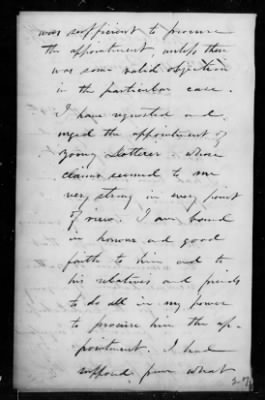 was sufficient to procure
the appointment, unless there
was some valid objection
in the particular case.
I have requested and
urged the appointment of
young Dotterer. whose
claims seemed to me
very strong in every point
of view. I am bound
in honour and good
faith to him and to
his relatives and friends
to do all in my power
to procure him the ap-
pointment. I had
supposed from what